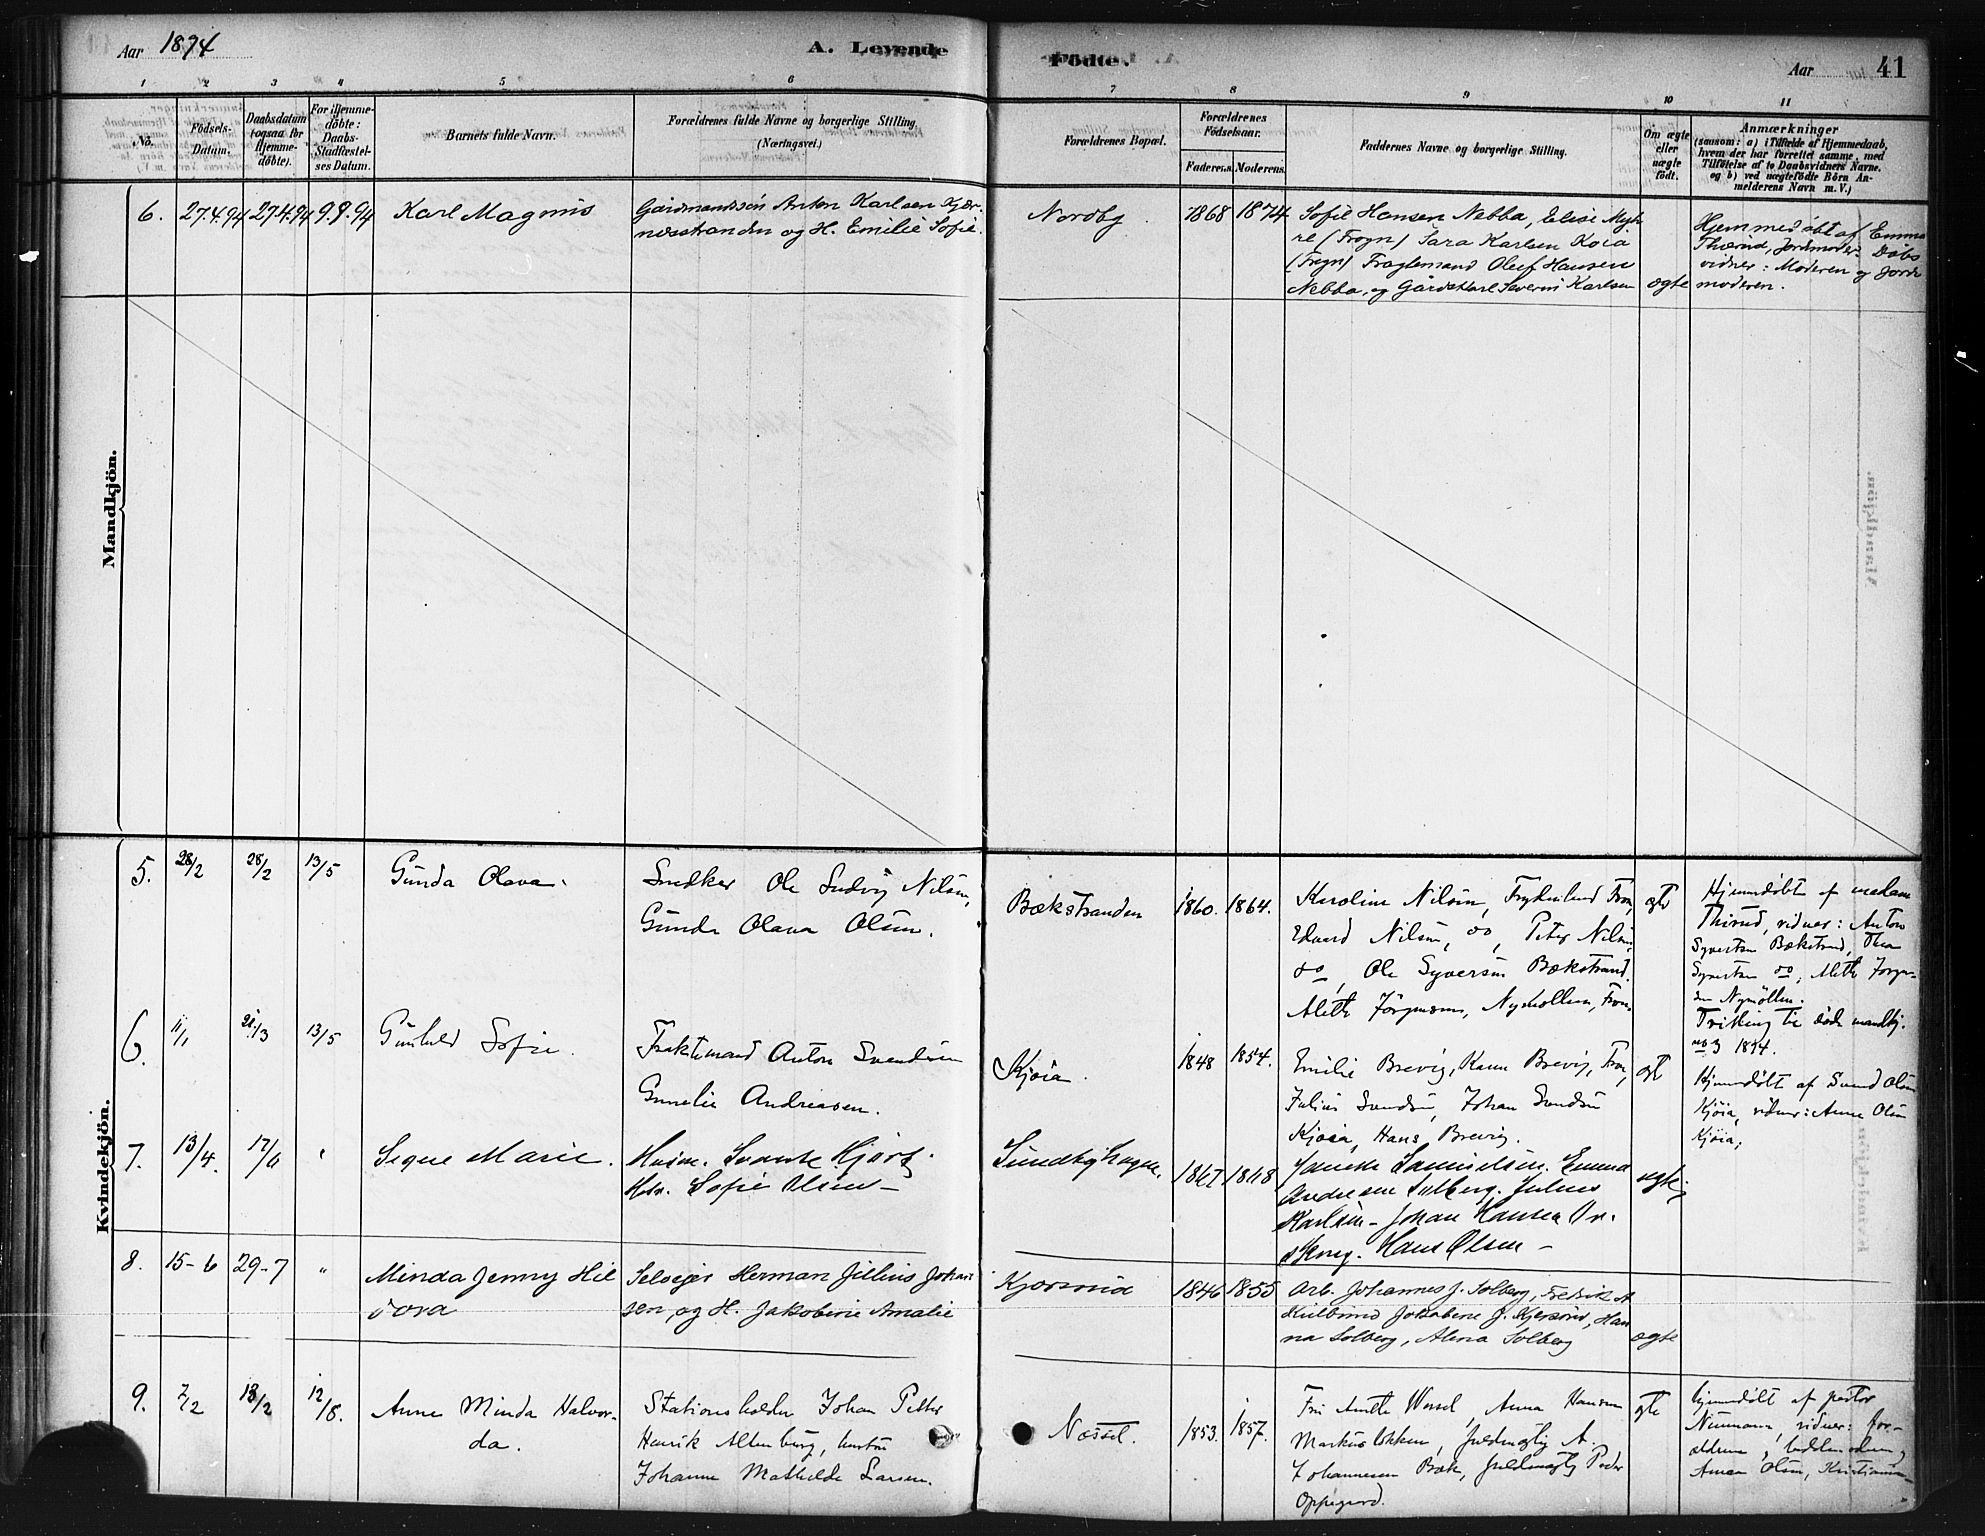 Aar 1894
A. Levende
Födte.
Aar
41
1 2 3 4 5 6 7 8 9 10 11
No.
Födsels-
Datum.
Daabsdatum
(ogsaa for
Hjemme-
döbte).
For Hjemme-
döbte:
Daabs-
Stadfæstel-
ses Datum.
Barnets fulde Navn.
Forældrenes fulde Navne og borgerlige Stilling.
(Næringsvei.)
Forældrenes Bopæl.
Forældrenes
Födselsaar.
Faderens.
Moderens.
Faddernes Navne og borgerlige Stilling.
Om ægte
eller
uægte
födt.
Anmærkninger
(saasom: a) i Tilfælde af Hjemmedaab,
hvem der har forrettet samme, med
Tilföielse af to Daabsvidners Navne.
og b) ved uægtefödte Börn An-
melderens Navn m. V.)
Mandkjön.
6. 27.4.94 27.4.94 9.9.94 Karl Magnus
Gårdmandssön Anton Karlsen Kjær-
nesstranden og H. Emilie Sofie.
Nordby 1868 1874
Sofie Hansen Nebba, Elise Myh-
re (Frogn) Sara Karlsen Koia
(Frogn) Fragtemand Oluf Hansen
Nebba, og Gårdskarl Severin Karlsen
ægte
Hjemmedöbt af Emma
Thverud, Jordmoder. Döbs
vidner: Moderen og Jord-
moderen.
Kvindekjön.
5. 28/2 28/2 13/5 Gunda Olava.
Snedker Ole Ludvig Nilsen,
Gunda Olava Olsen.
Bækstranden 1860. 1864.
Karoline Nilsen, Frydenlund Fron,
Edvard Nilsen, do, Peter Nilsen
do, Ole Syversen Bækstrand.
Alette Jörgensen, Nymöllen, Fron.
ægt
Hjemmdöbt af madam
Thirud, vidner: Anton
Syvertsen Bækstrand, Thea
Syvertsen do, Alette Jörgen-
sen Nymöllen.
Tvilling til döde mandkj.
no 3 1894.
6. 11/1 21/3 13/5 Gunhild Sofie.
Fraktemand Anton Svendsen
Gunelie Andreasen.
Kjøia. 1848 1854.
Emilie Brevig, Karen Brevig, Fron,
Julius Svendsen, Johan Svendsen
Kjøia, Hans Brevig.
ægt
Hjemmdöbt af Svend Olsen
Kjøia, vidner: Anne Olsen
Kjøia,
7. 13/4. 17/6 " Signe Marie.
Husm. Svante Hjorg.
Hstr. Sofie Olsen –
Sundbyhagen. 1867 1868
Samuelsen. Emma
Andresen Solberg. Julius
Karlsen – Johan Hansen
skoug. Hans Olsen –
8. 15-6 29-7 " Minda Jenny Hil
dora
Selveier Herman Julius Johan
sen, og H. Jakobine Amalie
Kjærsrud 1846 1855
Arb. Johannes J. Solberg, Fredrik A
Jakobine J. Kjersrud, Han
na Solberg, Alena Solberg
ægte
9. 7/2 13/2 12/8. Anne Minda Halvor-
da.
Stationsholder Johan Petter
Henrik Altenburg, hustru
Johanne Mathilde Larsen.
Næssel. 1853. 1857.
Fru Anette Wessel, Anna Hansen
Markusløkken, fuldmægtig A.
Johannesen Bæk, fuldmægtig Peder
Oppegaard.
ægte
hjemmdöbt af pastor
Neumann, vidner: for-
ældrene,
Anna Olsen, Kristiania